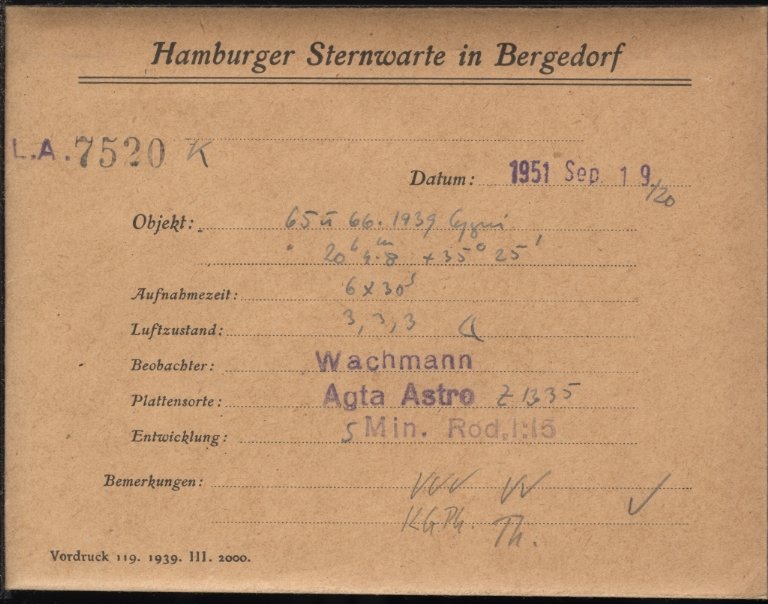 Hamburger Sternwarte in Bergedorf
L.A. 7520 K
Datum: 1951 Sep. 19./20
Objekt: 65 u 66. 1939 Cygni
20h 4m.8 +35° 25'
Aufnahmezeit: 6 x 30s
Luftzustand: 3, 3, 3
Beobachter: Wachmann
Plattensorte: Agfa Astro Z 1335
Entwicklung: 5 Min. Rod. 1:15
Bemerkungen: VVV VV ✓
KGPh. Th.
Vordruck 119. 1939. III. 2000.